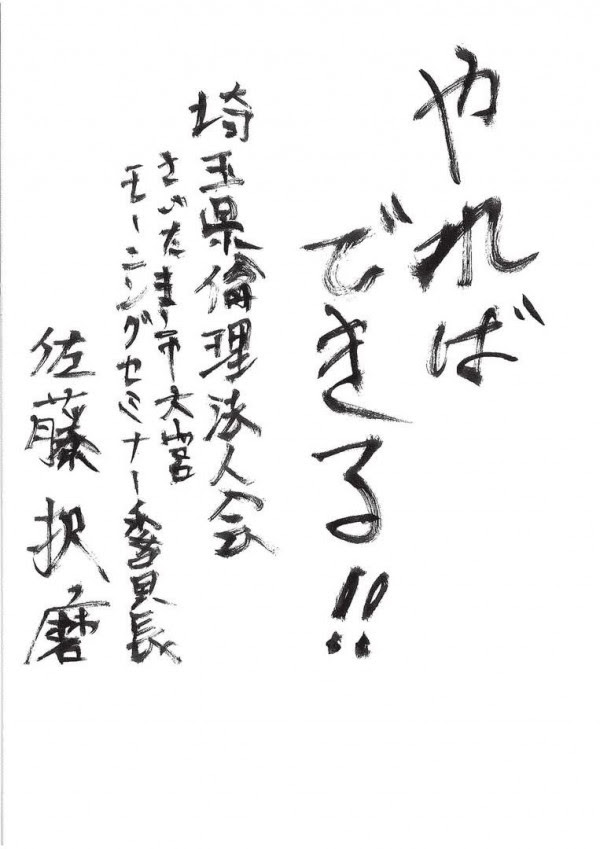 やれば
できる!!
埼玉県倫理法人会
さいたま市大宮
モーニングセミナー委員長
佐藤択磨